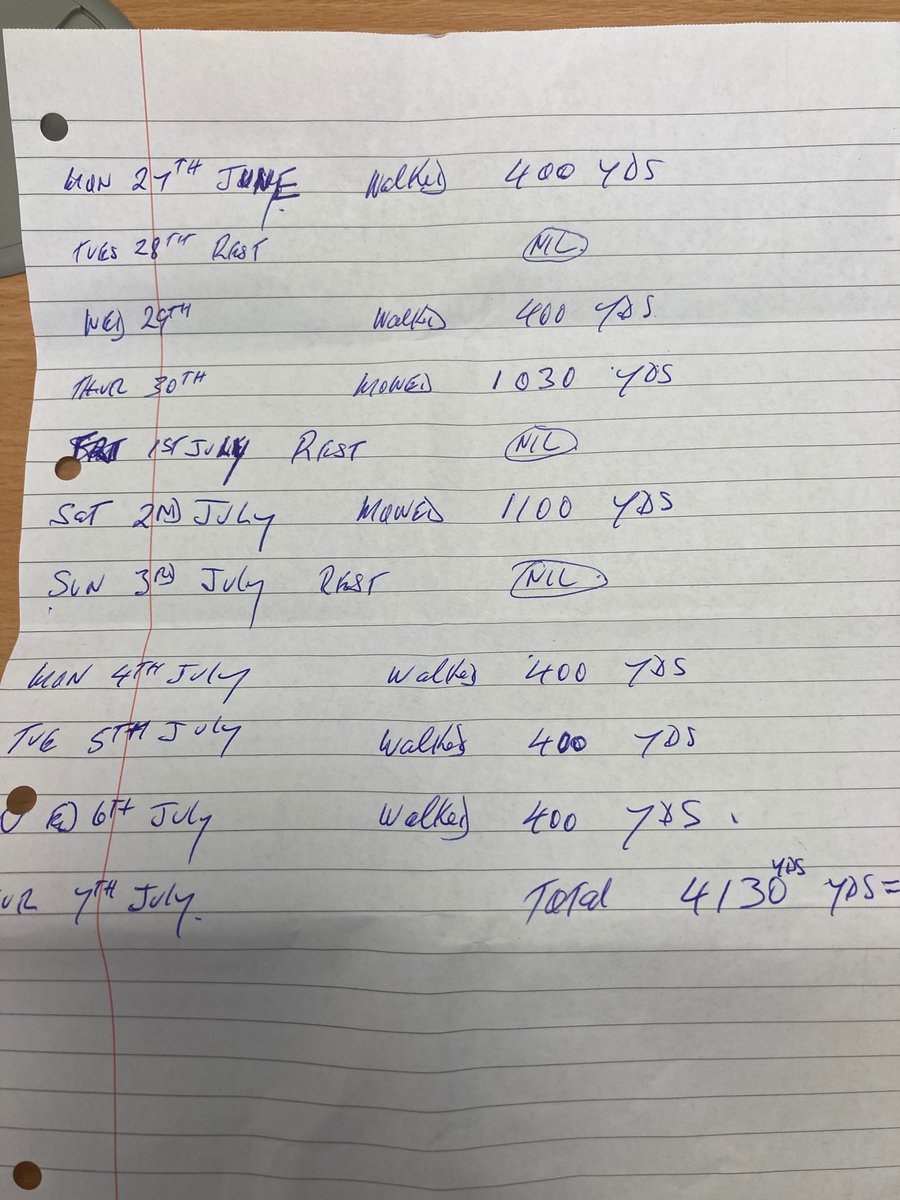 MON 27TH JUNE. Walked 400 YDS
TUES 28TH REST NIL.
WED 29TH Walked 400 YDS
THUR 30TH MOWED 1030 YDS
FRI 1ST JULY REST NIL
SAT 2ND JULY MOWED 1100 YDS
SUN 3RD JULY REST NIL.
MON 4TH JULY Walked 400 YDS
TUE 5TH JULY Walked 400 YDS
ED 6TH JULY Walked 400 YDS.
UR 7TH JULY. Total 4130 YDS YDS=